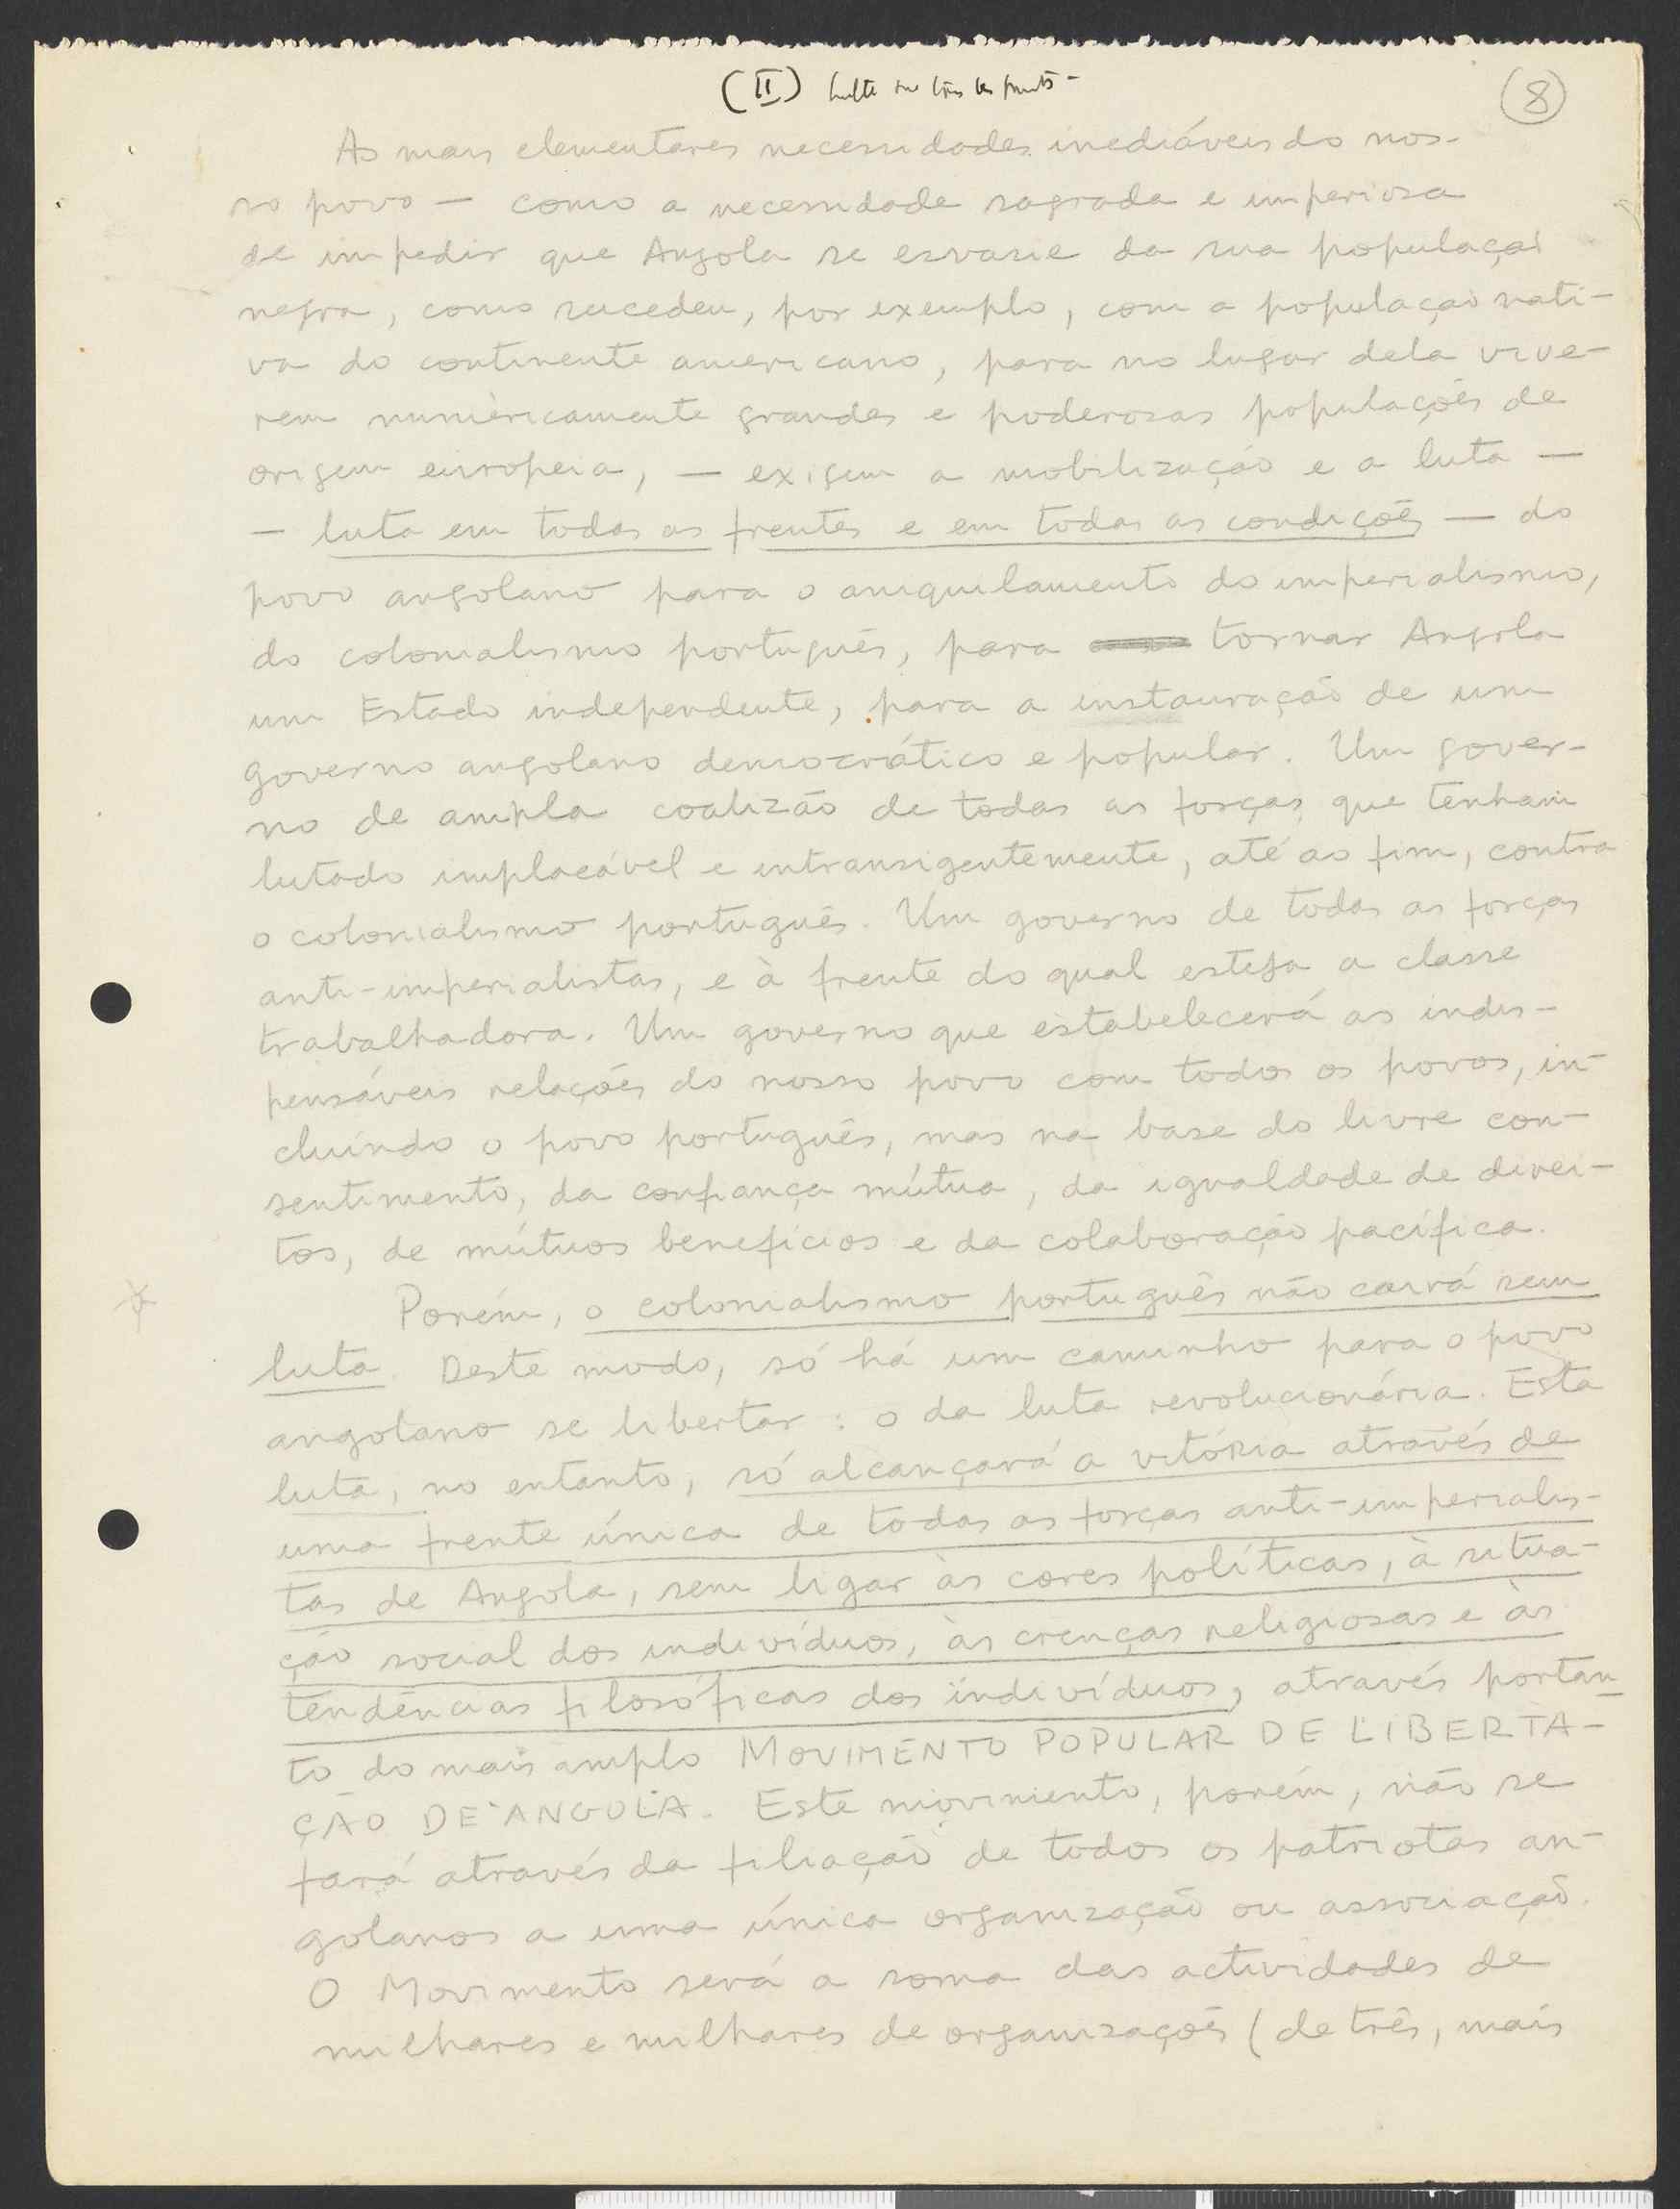 (II) lutte sur tous les fronts -
(8)
As mais elementares necessidades inediáveis do nos-
so povo — como a necessidade sagrada e imperiosa
de impedir que Angola se esvasie da sua população
negra, como sucedeu, por exemplo, com a população nati-
va do continente americano, para no lugar dela vive-
rem numèricamente grandes e poderosas populações de
origem europeia, — exigem a mobilização e a luta —
— luta em todas as frentes e em todas as condições — do
povo angolano para o aniquilamento do imperialismo,
do colonialismo português, para tornar Angola
um Estado independente, para a instauração de um
governo angolano democrático e popular. Um gover-
no de ampla coalizão de todas as forças que tenham
lutado implacável e intransigentemente, até ao fim, contra
o colonialismo português. Um governo de todas as forças
anti-imperialistas, e à frente do qual esteja a classe
trabalhadora. Um governo que estabelecerá as indis-
pensáveis relações do nosso povo com todos os povos, in-
cluindo o povo português, mas na base do livre con-
sentimento, da confiança mútua, da igualdade de direi-
tos, de mútuos benefícios e da colaboração pacífica.
Porém, o colonialismo português não cairá sem
luta. Deste modo, só há um caminho para o povo
angolano se libertar: o da luta revolucionária. Esta
luta, no entanto, só alcançará a vitória através de
uma frente única de todas as forças anti-imperialis-
tas de Angola, sem ligar às cores políticas, à situa-
ção social dos indivíduos, às crenças religiosas e às
tendências filosóficas dos indivíduos, através portan
to do mais amplo MOVIMENTO POPULAR DE LIBERTA-
ÇÃO DE ANGOLA. Este movimento, porém, não se
fará através da filiação de todos os patriotas an-
golanos a uma única organização ou associação.
O Movimento será a soma das actividades de
milhares e milhares de organizações (de três, mais